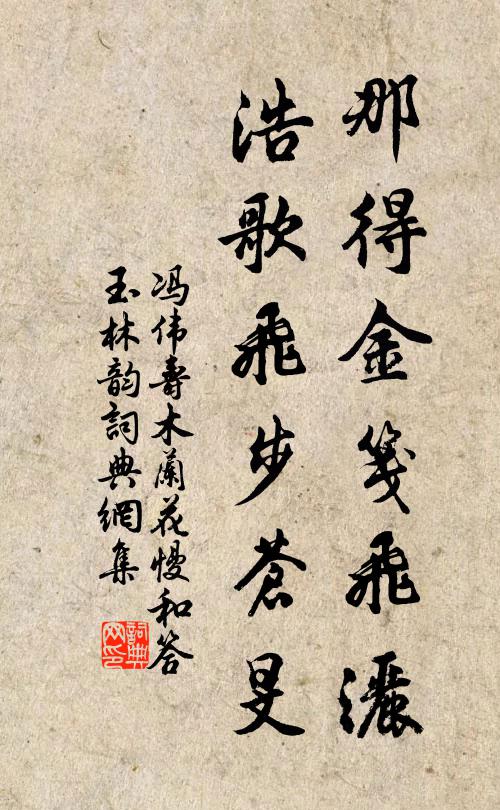 那得金笺飛灑
浩歌飛步蒼旻
冯伟壽木蘭花慢和答
玉林韵詞典網集
詞典网印